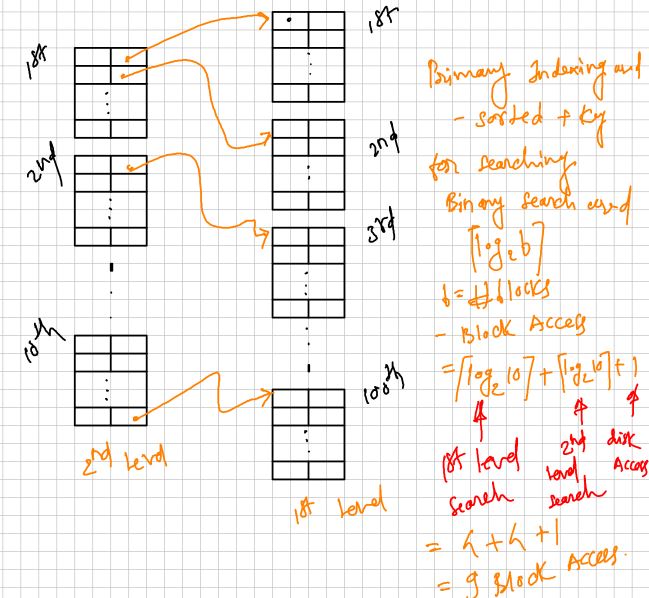 1st
2nd
10th
2nd Level
1st
2nd
3rd
100th
1st Level
Primary Indexing used
- sorted + Key
for searching
Binary Search used
⌈log₂b⌉
b = # blocks
- Block Access
= ⌈log₂10⌉ + ⌈log₂10⌉ + 1
1st level search
2nd Level search
disk Access
= 4 + 4 + 1
= 9 Block Access.